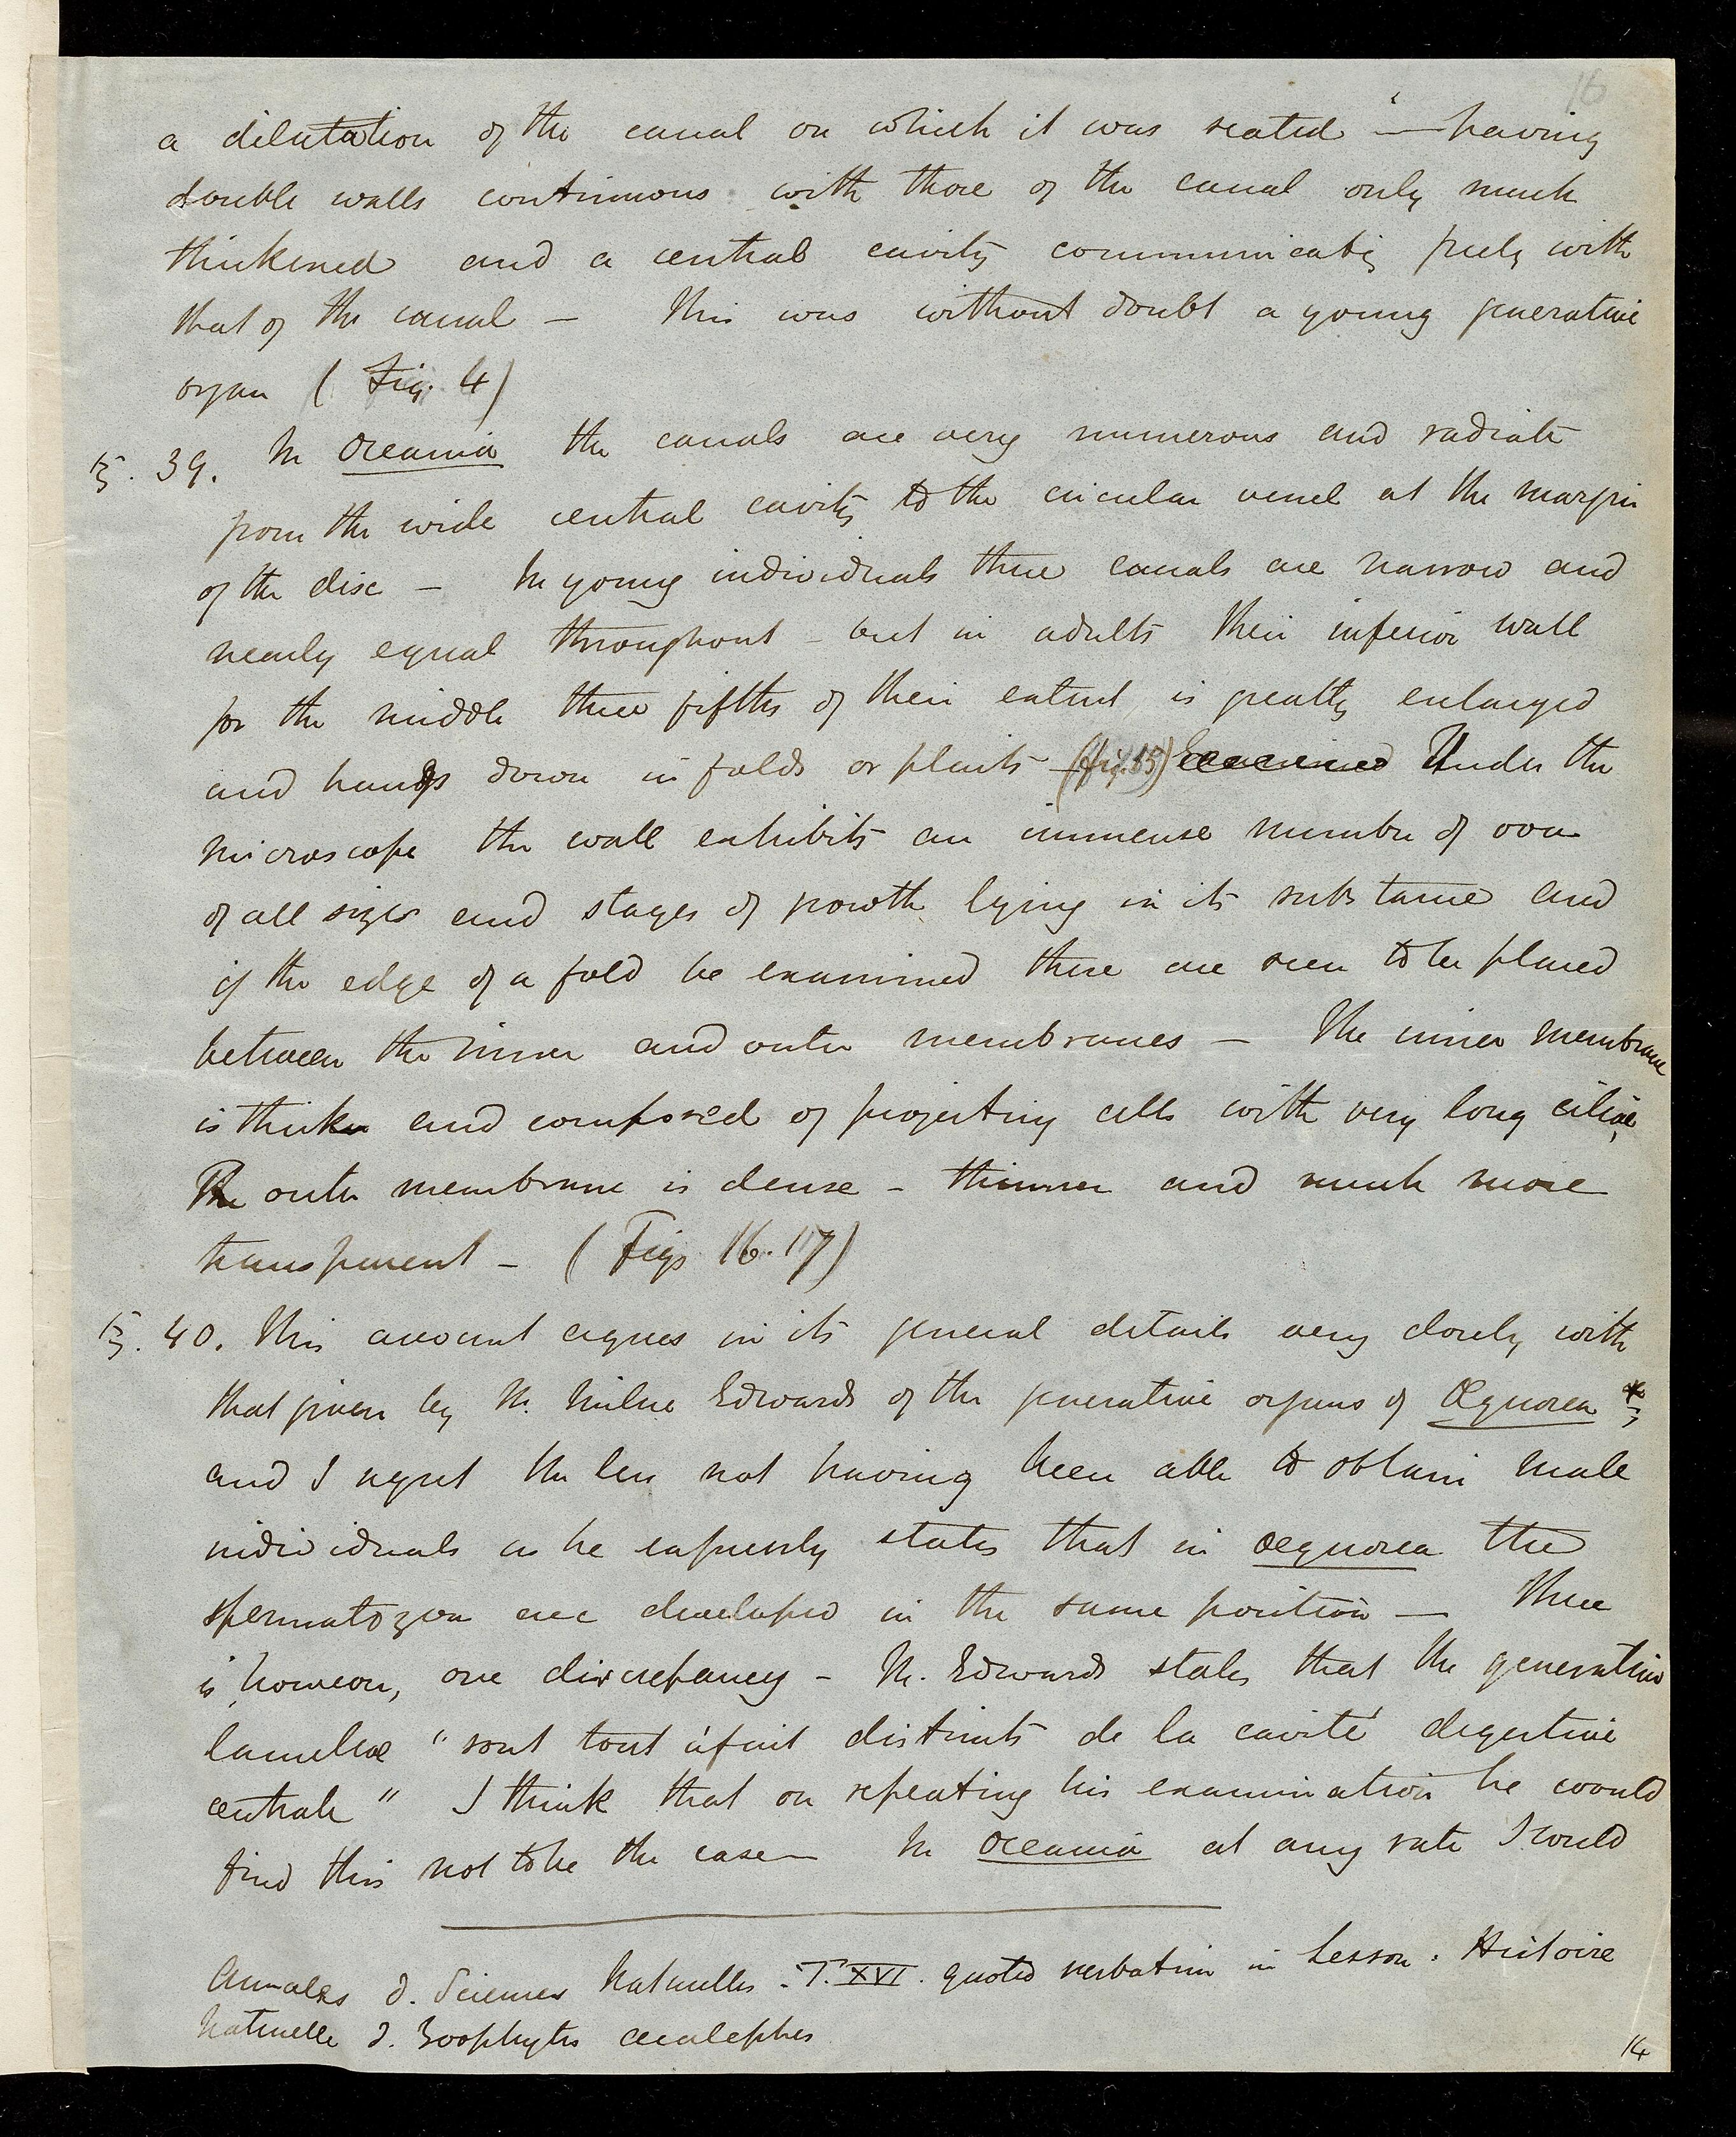 16
a dilatation of the canal on which it was seated — having
double walls continuous with those of the canal only much
thickened and a central cavity communicating freely with
that of the canal — This was without doubt a young generative
organ ( Fig. 4)
39. In Oceania the canals are very numerous and radiate
from the wide central cavity to the circular vessel at the margin
of the disc — In young individuals these canals are narrow and
nearly equal throughout – but in adults their inferior wall
for the middle three fifths of their extent, is greatly enlarged
and hangs down in folds or plaits – (fig. 15) Examined Under the
microscope the wall exhibits an immense number of ova
of all sizes and stages of growth lying in its substance and
if the edge of a fold be examined these are seen to be placed
between the inner and outer membranes – The inner membrane
is thicker and composed of projecting cells with very long ciliæ,
The outer membrane is dense – thinner and much more
transparent – ( Figs 16. 17)
40. This account agrees in its general details very closely with
that given by M. Milne Edwards of the generative organs of Æquorea *;
and I regret the less not having been able to obtain male
individuals as he expressly states that in æquorea the
spermatozoa are developed in the same position — There
is, however, one discrepancy – M. Edwards states that the generative
lamellæ "sont tout àfait distincts de la cavité digestive
centrale" I think that on repeating his examination he would
find this not to be the case – In Oceania at any rate I could
Annales d. Sciences Naturelles . T. XVI . quoted verbatim in Lesson . Histoire
Naturelle d. Zoophytes acalephes
14